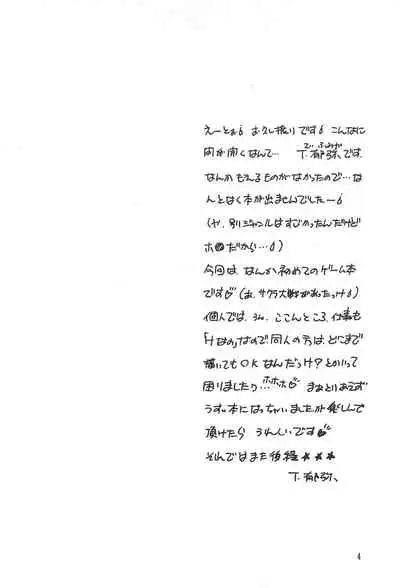 えーとぉ６ お久し振りです６ こんなに
間が開くなんて… T.郁弥です。
なんか もえるものがなかったので…な
んとなく本が出ませんでしたー６
(や、別ジャンルはすごかったんだけど
ホ●だから…６)
今回は、なんか初めてのゲーム本
です (あ、サクラ大戦があったっけ６)
個人では。うん、ここんところ、仕事も
「Hなの」なので、同人の方は、どこまで
描いてもOKなんだっけ?とかって
困りました♪…ホホホ まぁとりあえず
うすい本になっちゃいましたが楽しんで
頂けたら うれしいです
それではまた後程★★★
T.郁弥、
4